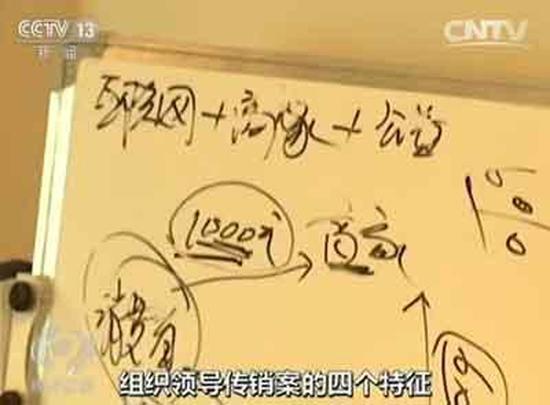 CCTV 13
新闻
CNTV
互联网+商家+公益
1000元
商家
消费者
组织领导传销案的四个特征